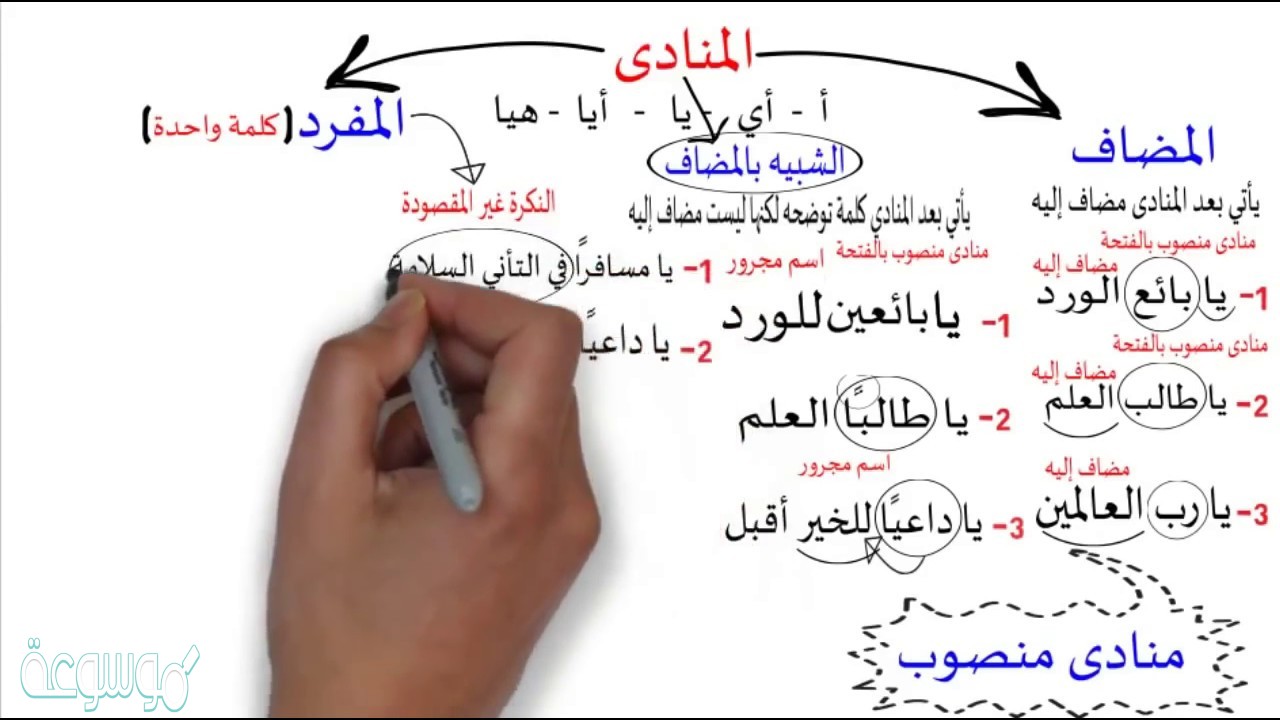 المنادى
أ - أي - يا - أيا - هيا
المضاف
يأتي بعد المنادى مضاف إليه
منادى منصوب بالفتحة
مضاف إليه
1- يا بائع الورد
منادى منصوب بالفتحة
مضاف إليه
2- يا طالب العلم
مضاف إليه
3- يا رب العالمين
منادى منصوب
الشبيه بالمضاف
يأتي بعد المنادي كلمة توضحه لكنها ليست مضاف إليه
منادى منصوب بالفتحة
اسم مجرور
1- يا بائعين للورد
2- يا طالبًا العلم
اسم مجرور
3- يا داعيًا للخير أقبل
المفرد (كلمة واحدة)
النكرة غير المقصودة
1- يا مسافراً في التأني السلامة
2- يا داعيًا
موسوعة